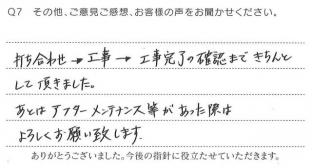 Q7 その他、ご意見ご感想、お客様の声をお聞かせください。
打ち合わせ→工事→工事完了の確認まできちんと
して頂きました。
あとはアフターメンテナンス等があった際は
よろしくお願い致します。
ありがとうございました。今後の指針に役立たせていただきます。